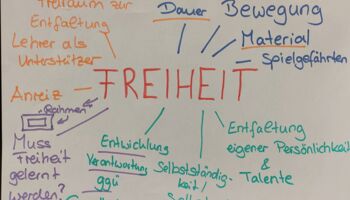 Freiraum zur
Entfaltung
Lehrer als
Unterstützer
Anreiz
Dauer
Bewegung
Material
Spielgefährten
FREIHEIT
Rahmen
Muss
Freiheit
gelernt
werden?
Entwicklung
Verantwortung
ggü
Selbstständig-
keit/
Entfaltung
eigener Persönlichkeit
&
Talente